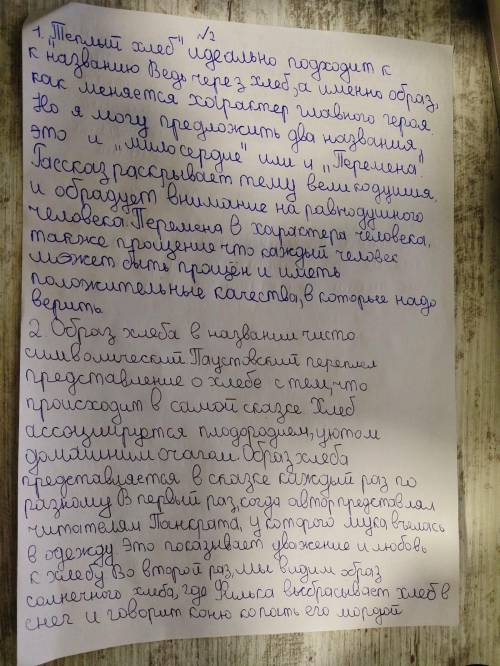 №2
1. "Теплый хлеб" идеально подходит к
к названию Ведь через хлеб, а именно образ,
как меняется характер главного героя.
Но я могу предложить два названия
это и „милосердие" или и „Перемена".
Рассказ раскрывает тему великодушия,
и обрадует внимание на равнодушного
человека. Перемена в характера человека,
также прощения что каждый человек
может быть прощён и иметь
положительные качества, в которые надо
верить
2 Образ хлеба в названии чисто
символический Паустовский переплел
представление о хлебе с тем, что
происходит в самой сказке Хлеб
ассоциируется плодородием, уютом
домашним очагом. Образ хлеба
представляется в сказке каждый раз по
разному В первый раз, когда автор представлял
читателям Панкрата, у которого мука вчилась
в одежду Это показывает уважение и любовь
к хлебу Во второй раз, мы видим образ
солнечного хлеба, где Филька выбрасывает хлеб в
снег и говорит коню копать его мордой